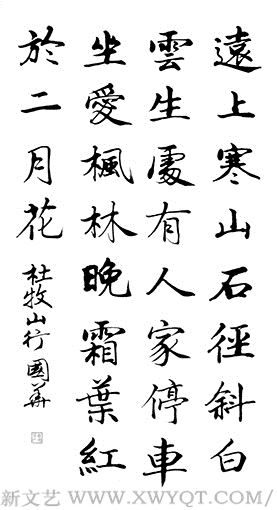 遠上寒山石徑斜白
雲生處有人家停車
坐愛楓林晚霜葉紅
於二月花
杜牧山行 國華
新文艺 WWW.XWYQT.COM/